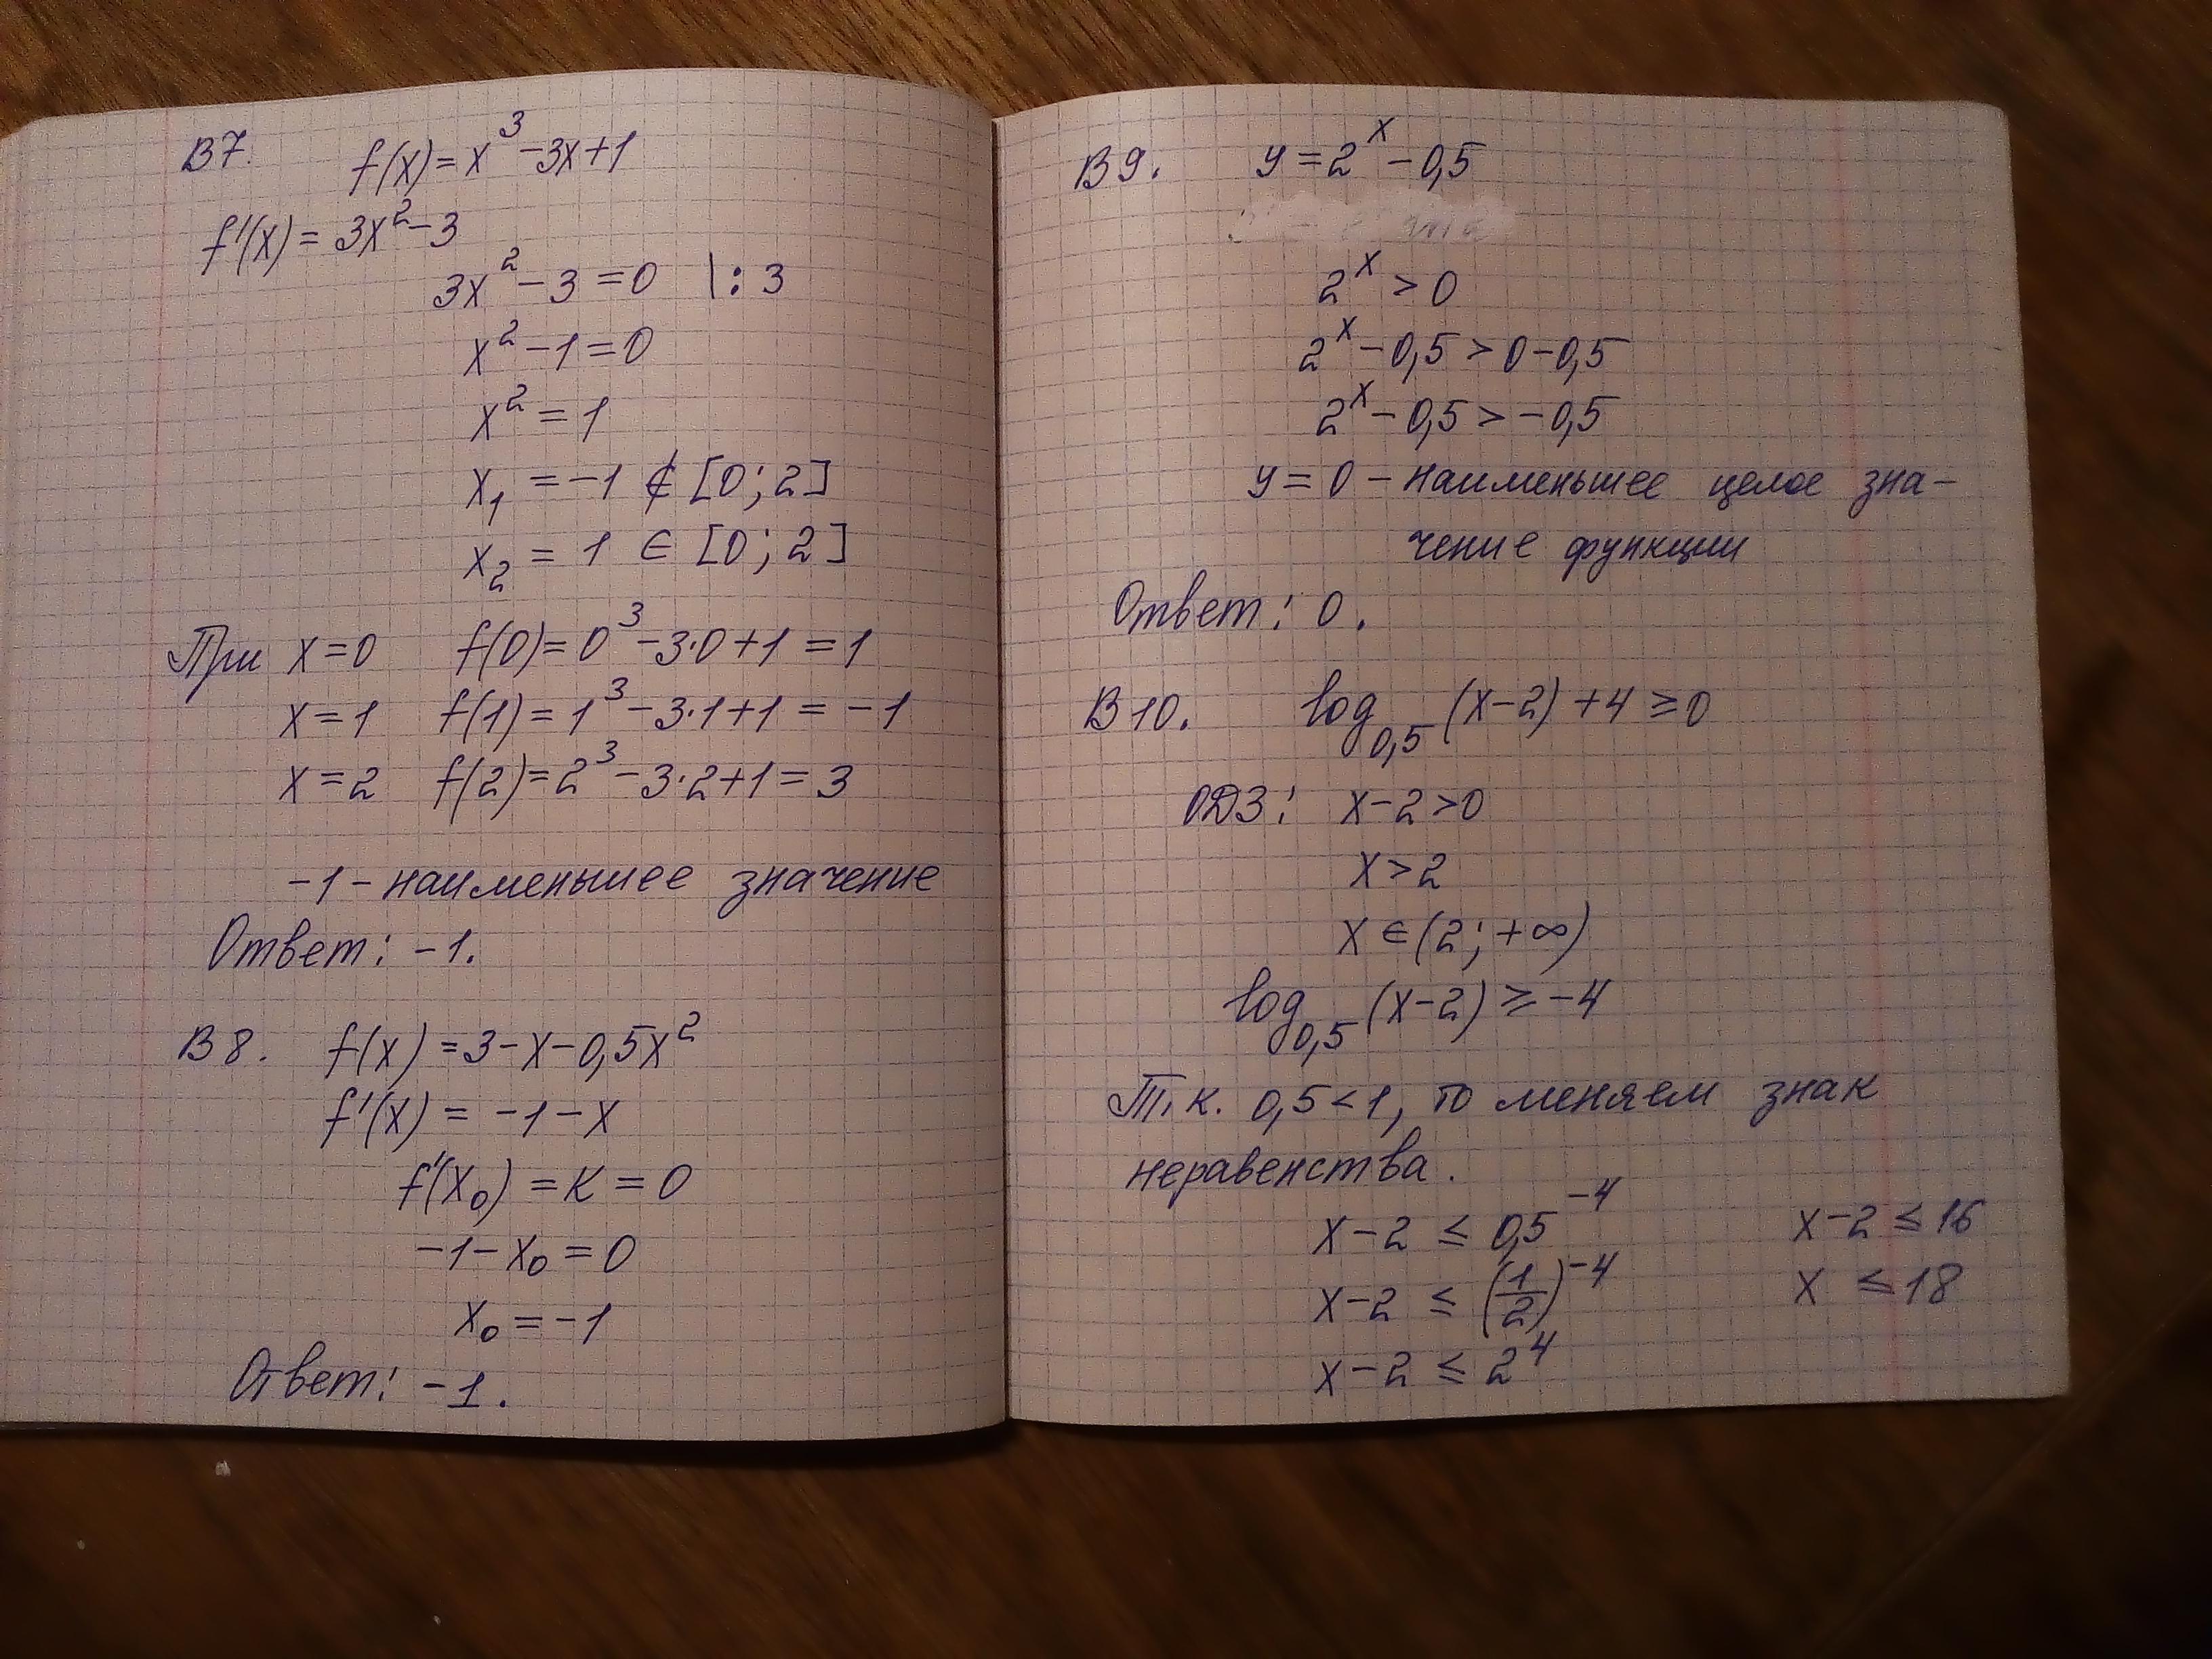 В7. f(x) = x³ - 3x + 1
f'(x) = 3x² - 3
3x² - 3 = 0 | : 3
x² - 1 = 0
x² = 1
x₁ = -1 ∉ [0; 2]
x₂ = 1 ∈ [0; 2]
При x = 0 f(0) = 0³ - 3·0 + 1 = 1
x = 1 f(1) = 1³ - 3·1 + 1 = -1
x = 2 f(2) = 2³ - 3·2 + 1 = 3
-1 - наименьшее значение
Ответ: -1.
В8. f(x) = 3 - x - 0,5x²
f'(x) = -1 - x
f'(x₀) = K = 0
-1 - x₀ = 0
x₀ = -1
Ответ: -1.
В9. y = 2ˣ - 0,5
2ˣ > 0
2ˣ - 0,5 > 0 - 0,5
2ˣ - 0,5 > -0,5
y = 0 - наименьшее целое зна-
чение функции
Ответ: 0.
В10. log₀,₅ (x-2) + 4 ≥ 0
ОДЗ: x - 2 > 0
x > 2
x ∈ (2; +∞)
log₀,₅ (x-2) ≥ -4
Т.к. 0,5 < 1, то меняем знак
неравенства.
x - 2 ≤ 0,5⁻⁴
x - 2 ≤ (1/2)⁻⁴
x - 2 ≤ 2⁴
x - 2 ≤ 16
x ≤ 18